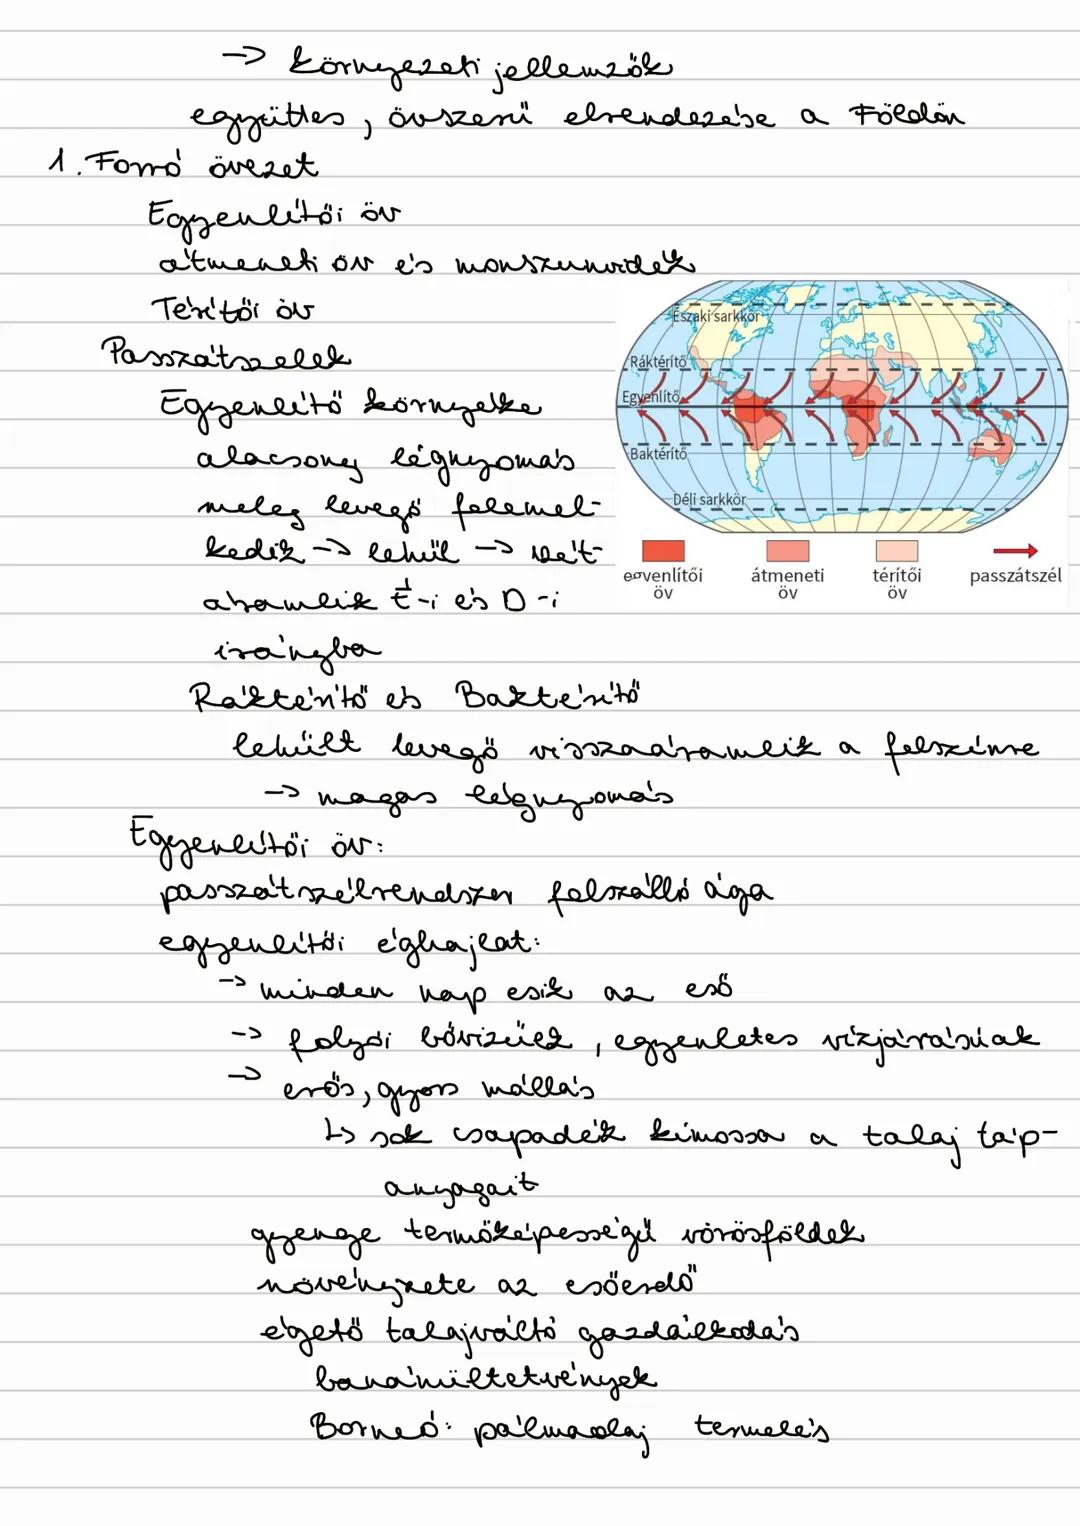 -> környezeti jellemzők
együttes, övszerű elrendezése a Földön
1. Forró övezet
Egyenlítői öv
átmeneti öv és monszunvidék
Térítői öv
Passzátszelek
Egyenlítő környéke
alacsony légnyomás
meleg levegő felemel-
kedik -> lehűl -> szét-
áramlik É-i és D-i
irányba
Ráktérítő és Baktérítő
lehült levegő visszaáramlik a felszínre
-> magas légnyomás
Egyenlítői öv:
passzátszélrendszer felszálló ága
egyenlítői éghajlat:
-> minden nap esik az eső
-> folyói bővizűek, egyenletes vízjárásúak
-> erős, gyors mállás
↳ sok csapadék kimossa a talaj táp-
anyagait
gyenge termőképességű vörösföldek
növényzete az esőerdő
égető talajváltó gazdálkodás
banánültetvények
Borneó: pálmaolaj termelés
Északi sarkkör
Ráktérítő
Egyenlítő
Baktérítő
Déli sarkkör
egyenlítői öv
átmeneti öv
térítői öv
passzátszél